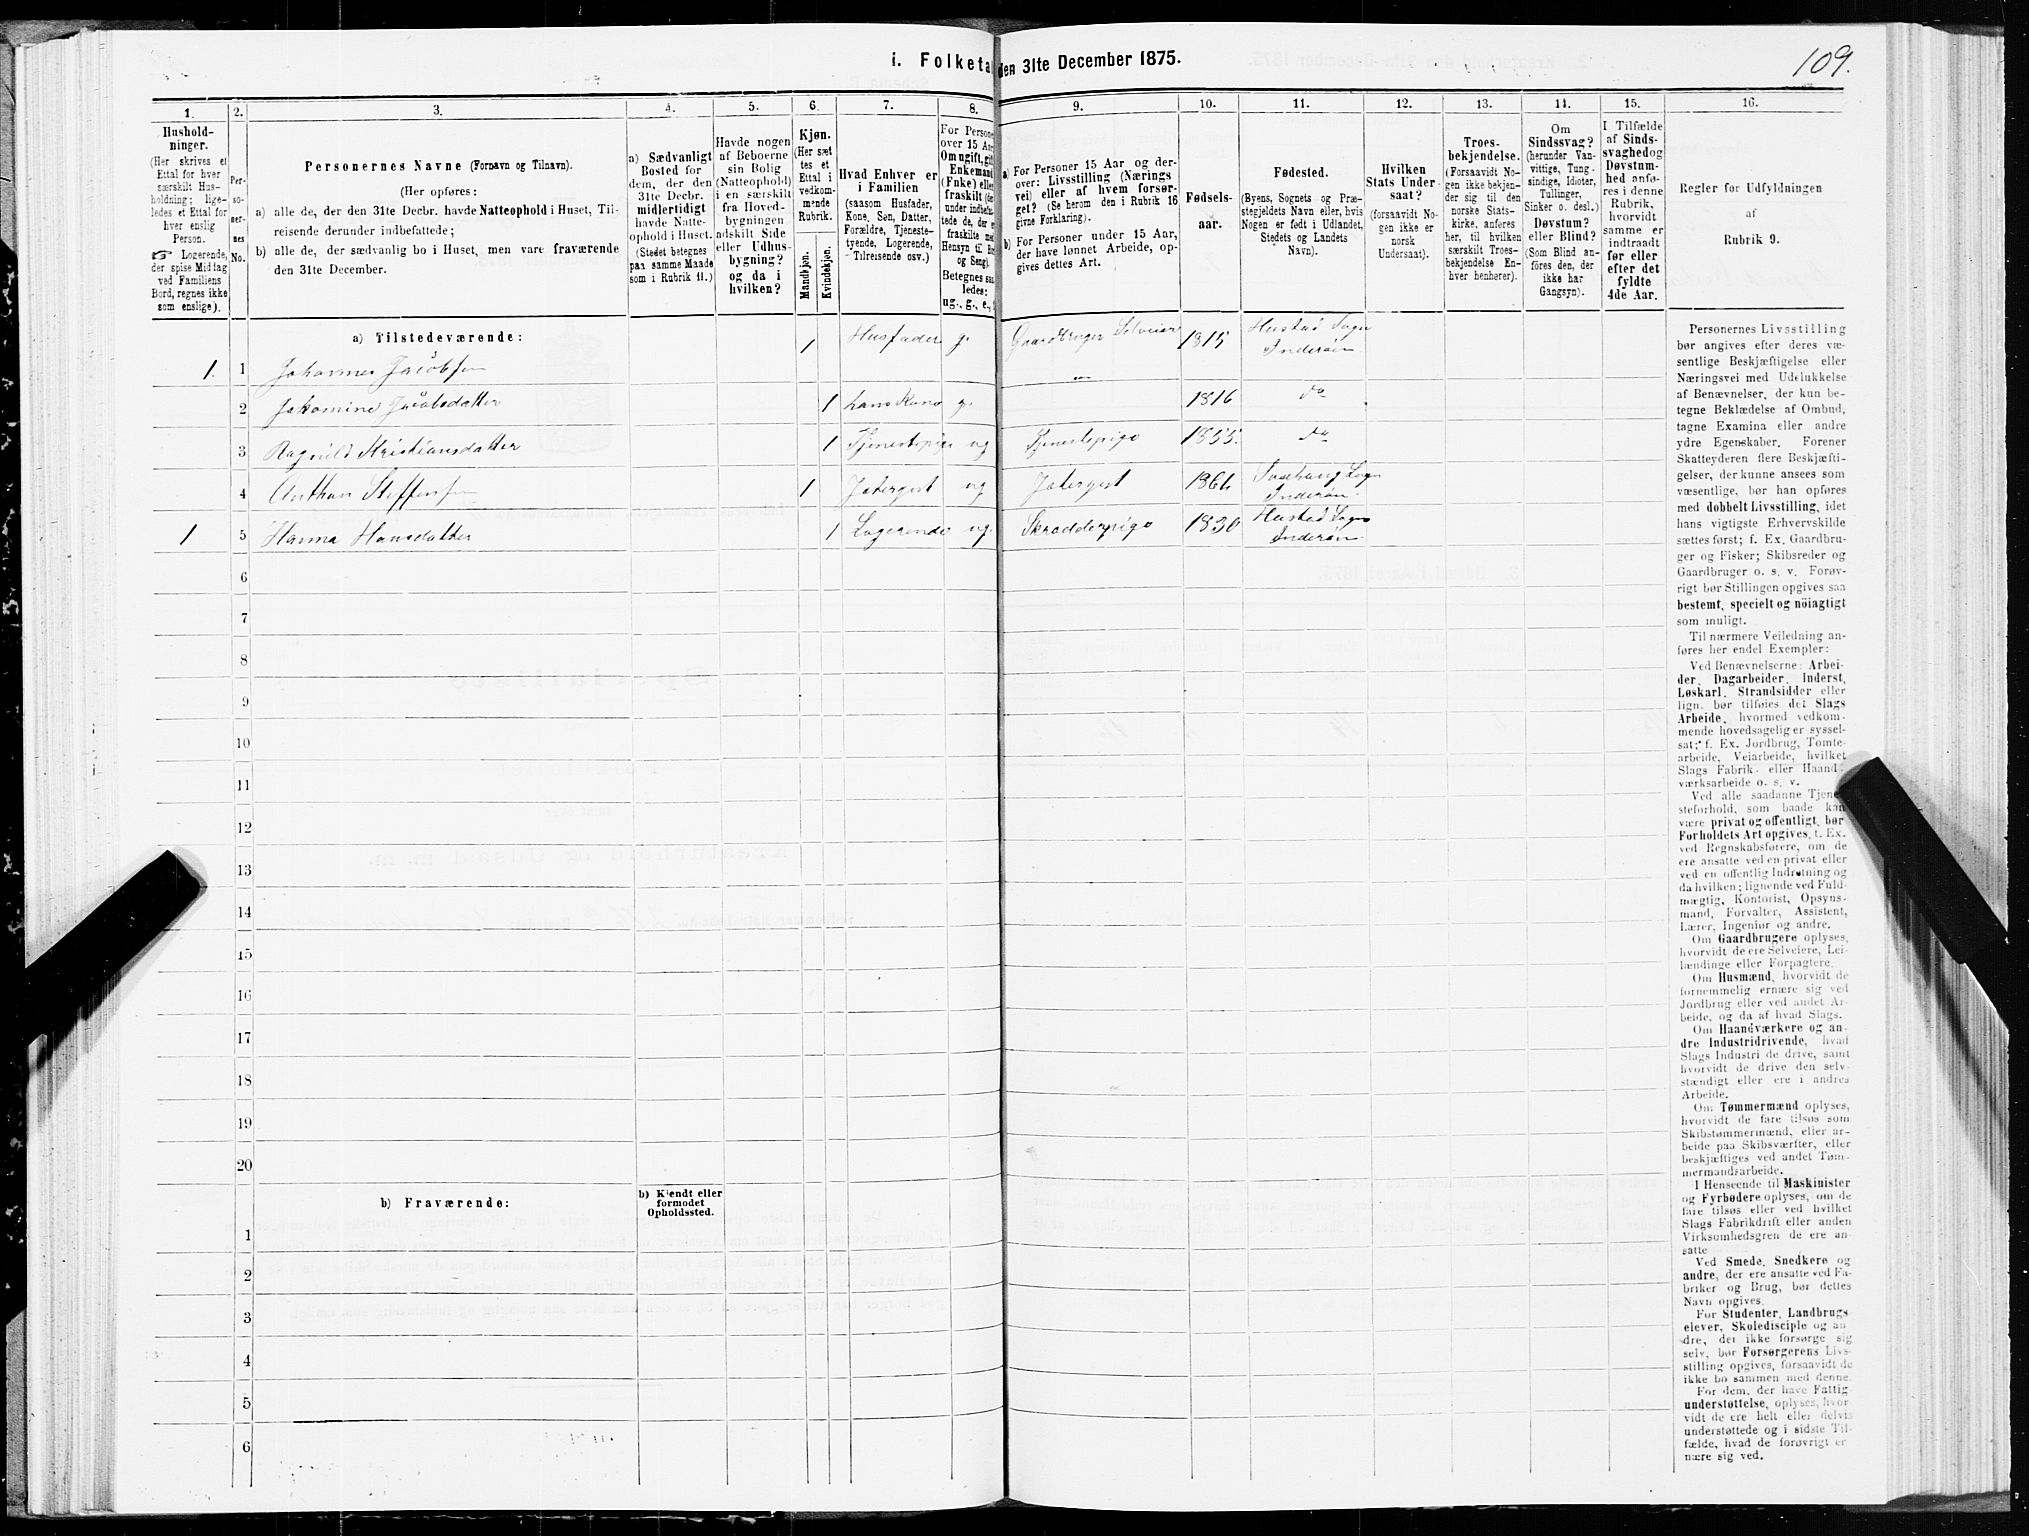 i. Folketal den 31te December 1875.
109.
1.
2.
3.
4.
5.
6.
7.
8.
9.
10.
11.
12.
13.
14.
15.
16.
Hushold-
ninger.
(Her skrives et
Ettal for hver
særskilt Hus-
holdning; lige-
ledes et Ettal for
hver enslig
Person.
☞ Logerende,
der spise Middag
ved Familiens
Bord, regnes ikke
som enslige).
Per-
soner-
nes
No.
Personernes Navne (Fornavn og Tilnavn).
(Her opføres:
a) alle de, der den 31te Decbr. havde Natteophold i Huset, Til-
reisende derunder indbefattede;
b) alle de, der sædvanlig bo i Huset, men vare fraværende
den 31te December.
a) Sædvanligt
Bosted for
dem, der den
31te Decbr.
midlertidigt
havde Natte-
ophold i Huset.
(Stedet betegnes
paa samme Maade
som i Rubrik 11.)
Havde nogen
af Beboerne
sin Bolig
(Natteophold)
i en særskilt
fra Hoved-
bygningen
adskilt Side
eller Udhus-
bygning?
og da i
hvilken?
Kjøn.
(Her sæt
tes et
Ettal i
vedkom-
mende
Rubrik.
Mandkjøn.
Kvindekjøn.
Hvad Enhver er
i Familien
(saasom Husfader,
Kone, Søn, Datter,
Forældre, Tjeneste-
tyende, Logerende,
Tilreisende osv.)
For Persone
over 15 Aar
Om ugift, gift
Enkemand
(Fnke) eller
fraskilt (de
under indbefat-
tede de, der e
fraskilte med
Hensyn til Bo
og Seng).
Betegnes saa
ledes:
ug., g., e.,
a) For Personer 15 Aar og der-
over: Livsstilling (Nærings
vei) eller af hvem forsør-
get? (Se herom den i Rubrik 16
givne Forklaring).
b) For Personer under 15 Aar,
der have lønnet Arbeide, op-
gives dettes Art.
Fødsels-
aar.
Fødested.
(Byens, Sognets og Præ-
stegjeldets Navn eller, hvis
Nogen er født i Udlandet,
Stedets og Landets
Navn).
Hvilken
Stats Under-
saat?
(forsaavidt No-
gen ikke er
norsk
Undersaat).
Troes-
bekjendelse.
(Forsaavidt No-
gen ikke bekjen-
der sig til den
norske Stats-
kirke, anføres
her, til hvilken
særskilt Troes-
bekjendelse En-
hver henhører).
Om
Sindssvag?
(herunder Van-
vittige, Tung-
sindige, Idioter,
Tullinger,
Sinker o. desl.)
Døvstum?
eller Blind?
(Som Blind an-
föres den, der
ikke har
Gangsyn).
I Tilfælde
af Sinds-
svaghed og
Døvstum-
hed anfø-
res i denne
Rubrik,
hvorvidt
samme er
indtraadt
før eller
efter det
fyldte
4de Aar.
Regler for Udfyldningen
af
Rubrik 9.
a) Tilstedeværende:
1. 1 Johannes Jacobsen 1 Husfader g. Gaardbruger Selveier 1815 Hustad Sogn Inderøen
2 Jakomine Jacobsdatter 1 hans Kone g. 1816 do
3 Ragnild Kristiansdatter 1 Tjenestepige ug Tjenestepige 1855. do
4 Steffensen 1 ug 1864 Sogn Inderøen
1 5 Hanna Hansdatter 1 Logerende ug. Skrædderpige 1830 Hustad Sogn Inderøen
6
7
8
9
10
11
12
13
14
15
16
17
18
19
20
b) Fraværende:
b) Kjendt eller
formodet
Opholdssted.
1
2
3
4
5
6
Personernes Livsstilling
bør angives efter deres væ-
sentlige Beskjæftigelse eller
Næringsvei med Udelukkelse
af Benævnelser, der kun be-
tegne Beklædelse af Ombud,
tagne Examina eller andre
ydre Egenskaber. Forener
Skatteyderen flere Beskjæfti-
gelser, der kunne ansees som
væsentlige, bør han opføres
med dobbelt Livsstilling, idet
hans vigtigste Erhvervskilde
sættes först; f. Ex. Gaardbru-
ger og Fisker; Skibsreder og
Gaardbruger o. s. v. Forøv-
rigt bør Stillingen opgives saa
bestemt, specielt og nöiagtigt
som muligt.
Til nærmere Veiledning an-
føres her endel Exempler:
Ved Benævnelserne: Arbei-
der, Dagarbeider, Inderst,
Løskarl, Strandsidder eller
lign. bør tilføies det Slags
Arbeide, hvormed vedkom-
mende hovedsagelig er syssel-
sat; f. Ex. Jordbrug, Tomte-
arbeide, Veiarbeide, hvilket
Slags Fabrik- eller Haand-
værksarbeide o. s. v.
Ved alle saadanne Tjene-
steforhold, som baade kan
være privat og offentligt, bør
Forholdets Art opgives, t. Ex.
ved Regnskabsførere, om de
ere ansatte ved en privat eller
ved en offentlig Indretning og
da hvilken; lignende ved Fuld-
mægtig, Kontorist, Opsyns-
mand, Forvalter, Assistent,
Lærer, Ingeniør og andre.
Om Gaardbrugere oplyses,
hvorvidt de ere Selveiere, Lei-
lændinge eller Forpagtere.
Om Husmænd, hvorvidt de
fornemmelig ernære sig ved
Jordbrug eller ved andet Ar-
beide, og da af hvad Slags.
Om Haandværkere og an-
dre Industridrivende, hvad
Slags Industri de drive, samt
hvorvidt de drive den selv-
stændigt eller ere i andres
Arbeide.
Om Tømmermænd oplyses,
hvorvidt de fare tilsøs som
Skibstømmermænd, eller ar-
beide paa Skibsværfter, eller
beskjæftiges ved andet Tøm-
mermandsarbeide.
I Henseende til Maskinister
og Fyrbødere oplyses, om de
fare tilsøs eller ved hvilket
Slags Fabrikdrift eller anden
Virksomhedsgren de ere an-
satte
Ved Smede, Snedkere og
andre, der ere ansatte ved Fa-
briker og Brug, bør dettes
Navn opgives.
For Studenter, Landbrugs
elever, Skoledisciple og an
dre, der ikke forsørge sig
selv, bør Forsørgerens Livs-
stilling opgives, forsaavidt de
ikke bo sammen med denne.
For dem, der have Fattig
understøttelse, oplyses, hvor-
vidt de ere helt eller delvis
understøttede og i sidste Til-
fælde, hvad de forøvrigt er
nære sig ved.